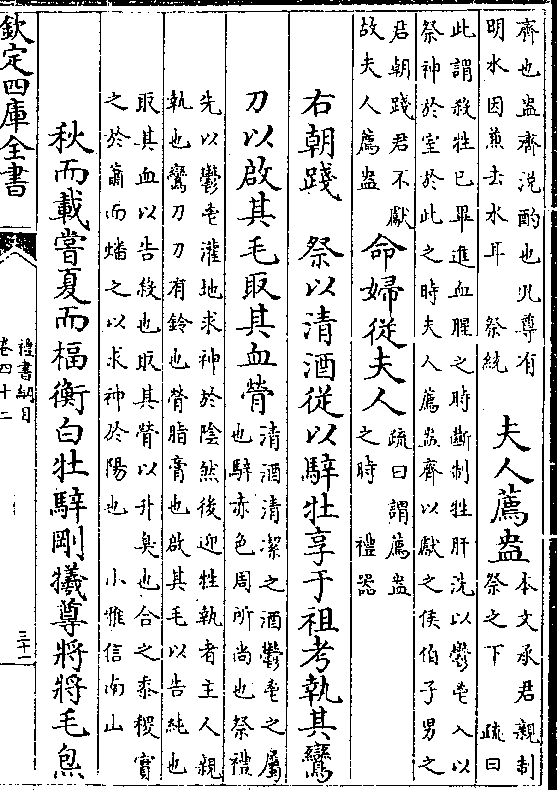 齊也盎齊涗酌也凡尊有
明水因兼云水耳　祭統
夫人薦盎
本文承君親制
祭之下　疏曰
此謂殺牲已畢進血腥之時斷制牲肝洗以鬱鬯入以
祭神於室於此之時夫人薦盎齊以獻之侯伯子男之
君朝踐君不獻
故夫人薦盎
命婦從夫人
疏曰謂薦盎
之時　禮器
右朝踐　祭以清酒從以騂牡享于祖考執其鸞
刀以啟其毛取其血膋
清酒清潔之酒鬱鬯之屬
也騂赤色周所尚也祭禮
先以鬱鬯灌地求神於陰然後迎牲執者主人親
執也鸞刀刀有鈴也膋脂膏也啟其毛以告純也
取其血以告殺也取其膋以升臭也合之黍稷實
之於蕭而燔之以求神於陽也　小雅信南山
秋而載嘗夏而楅衡白牡騂剛犧尊將將毛炰
欽定四庫全書
禮書綱目
卷四十二
三十一